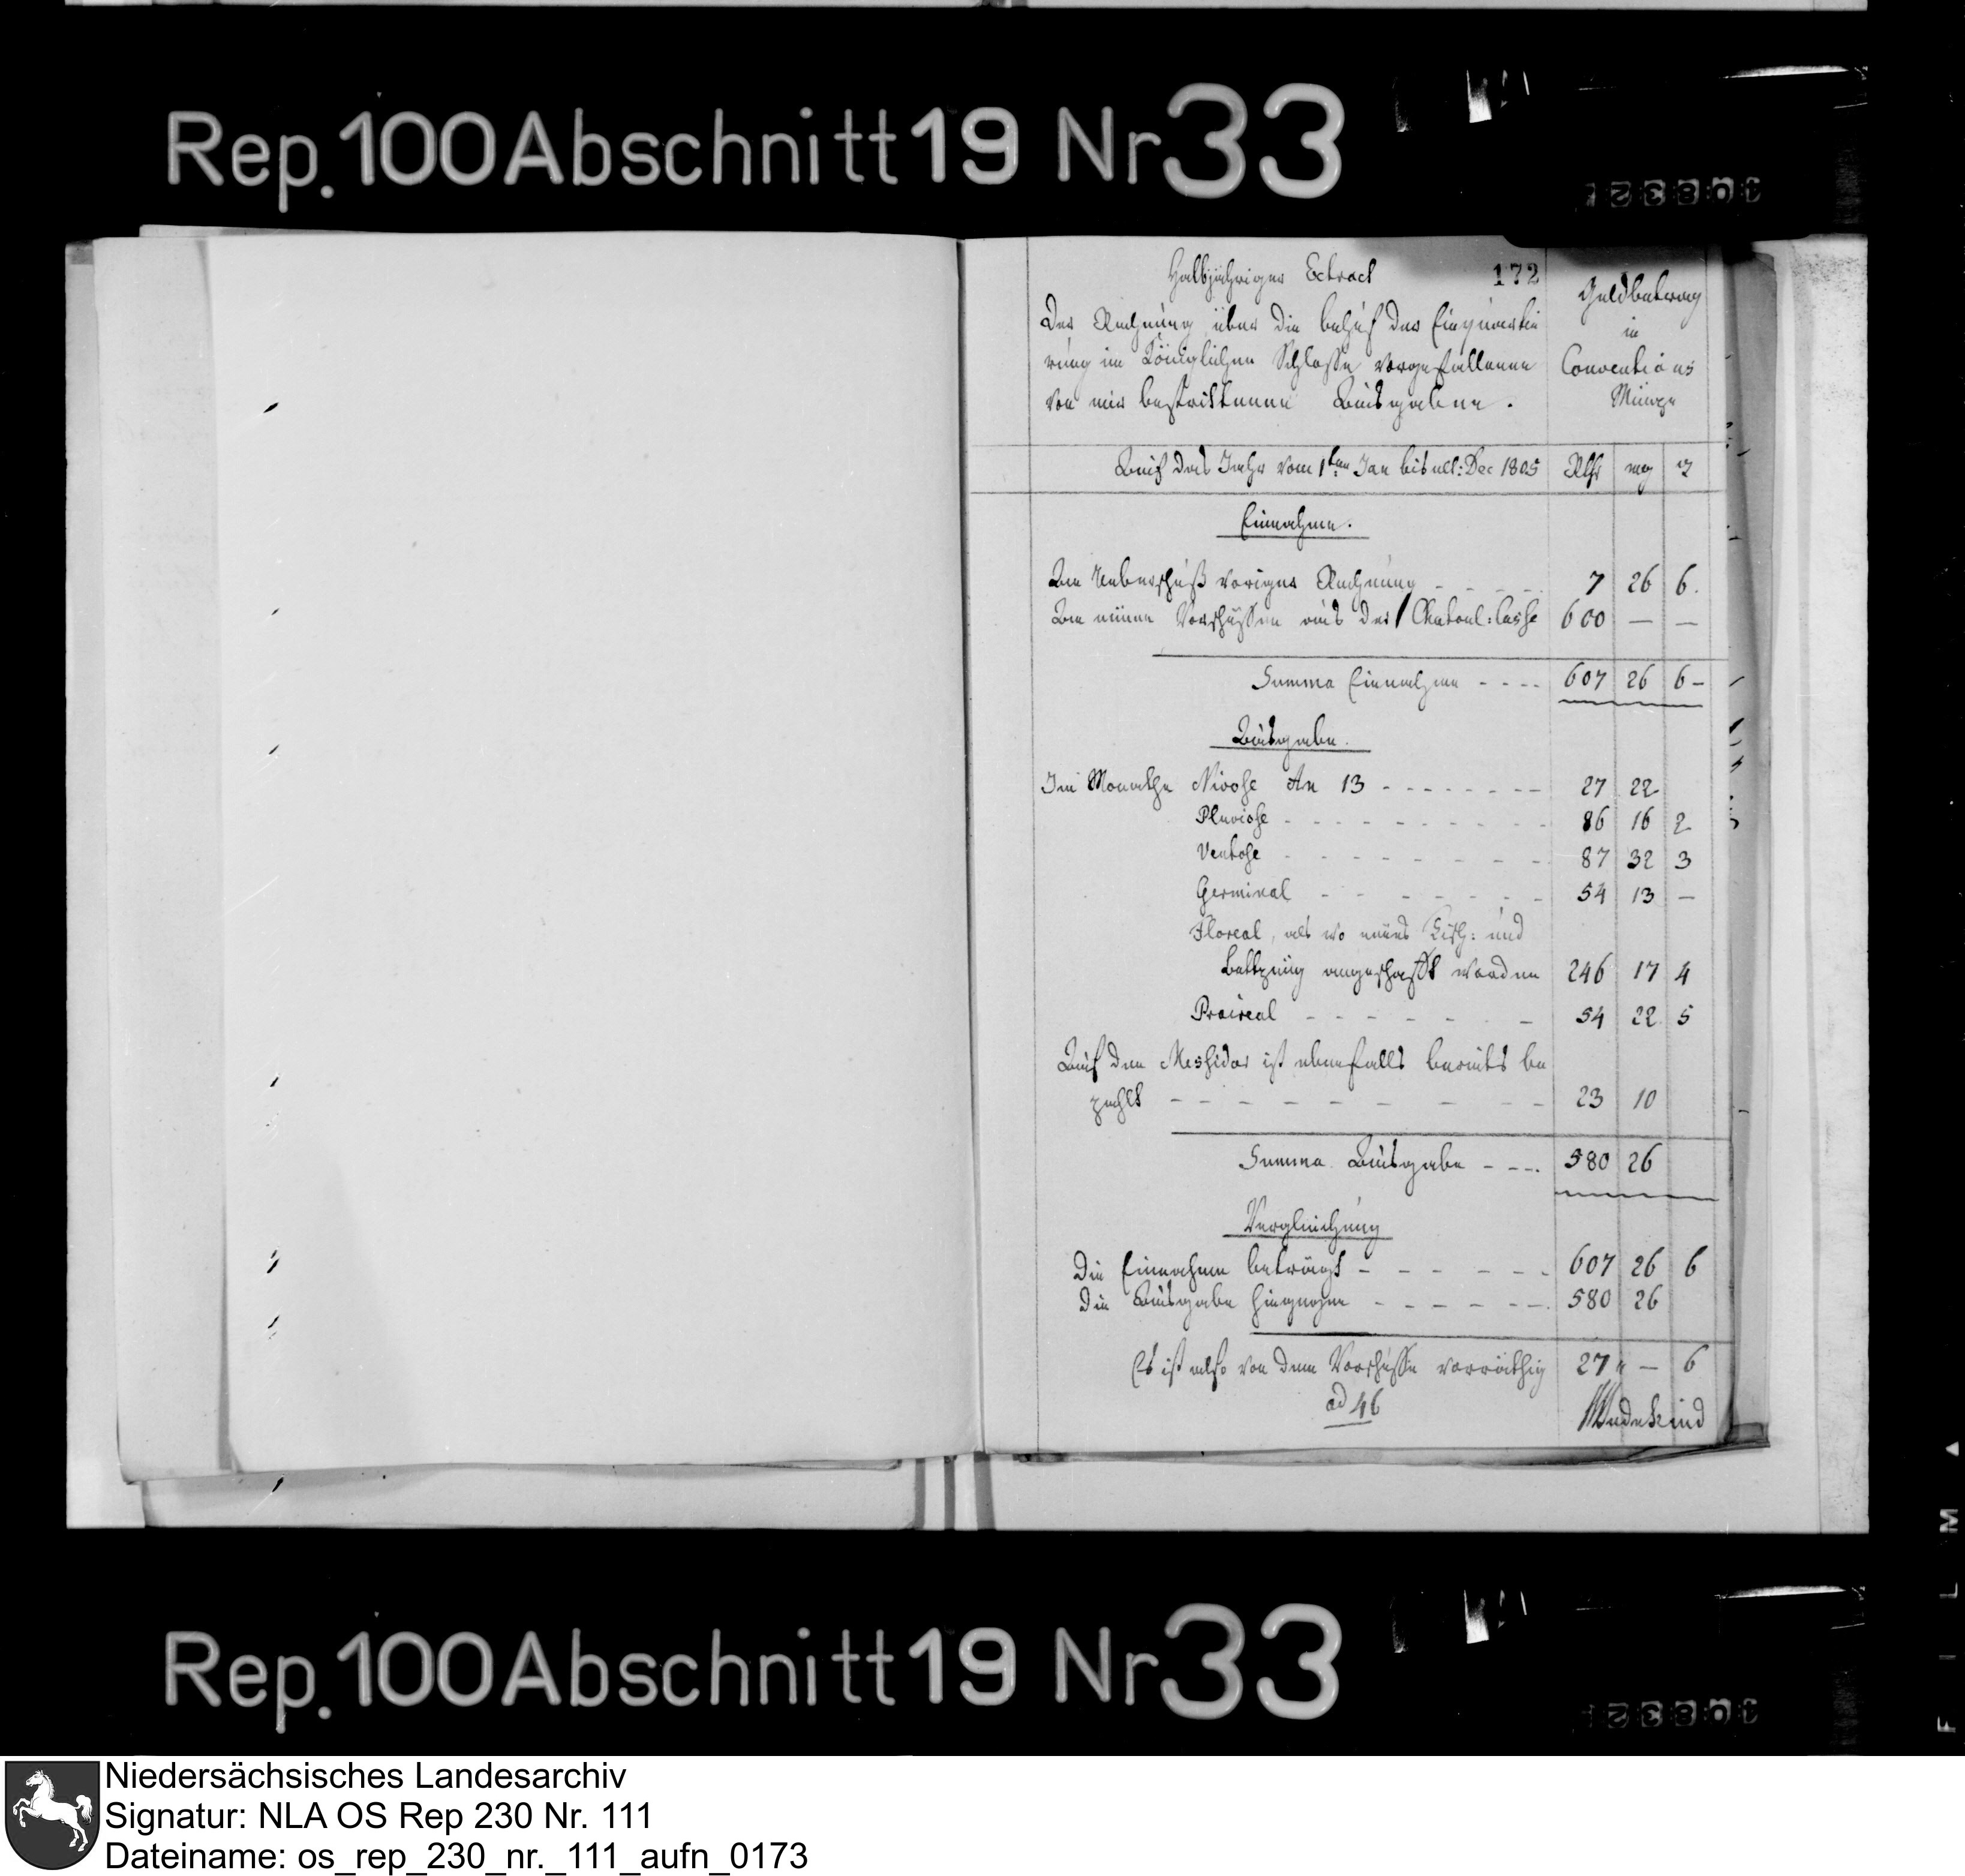 Rep. 100 Abschnitt 19 Nr 33
Halbjähriger Extract
172
Der Rechnung über die behuf der Einquartie
rung im Königlichen Schlosse vorgefallenen
von mir bestrittenen Ausgaben.
Geldbetrag
in
Conventions
Münze
Auf das Jahr vom 1ten Jan bis ult: Dec 1805 Rthr mg ₰
Einnahme.
An Ueberschuß voriger Rechnung - - - - 7 26 6.
An neuen Vorschüssen aus der Chatoul: Casse 600 — —
Summa Einnahme - - - - 607 26 6 -
Ausgabe.
Im Monathe Nivose An 13 - - - - - - - - 27 22
Pluviose - - - - - - - - - - 86 16 2
Ventose - - - - - - - - - 87 32 3
Germinal - - - - - - - 54 13 —
Floreal, als wo neues Tisch: und
Bettzeug angeschafft worden 246 17 4
Praireal - - - - - - - 54 22 5
Auf den Messidor ist ebenfalls bereits be
zahlt - - - - - - - - - - - 23 10
Summa Ausgabe - - - - 580 26
Vergleichung
Die Einnahme beträgt - - - - - - 607 26 6
Die Ausgabe hingegen - - - - - - 580 26
Es ist also von dem Vorschusse vorräthig 27 „ — 6
ad 46
Wedekind
Rep. 100 Abschnitt 19 Nr 33
FILM
Niedersächsisches Landesarchiv
Signatur: NLA OS Rep 230 Nr. 111
Dateiname: os_rep_230_nr._111_aufn_0173